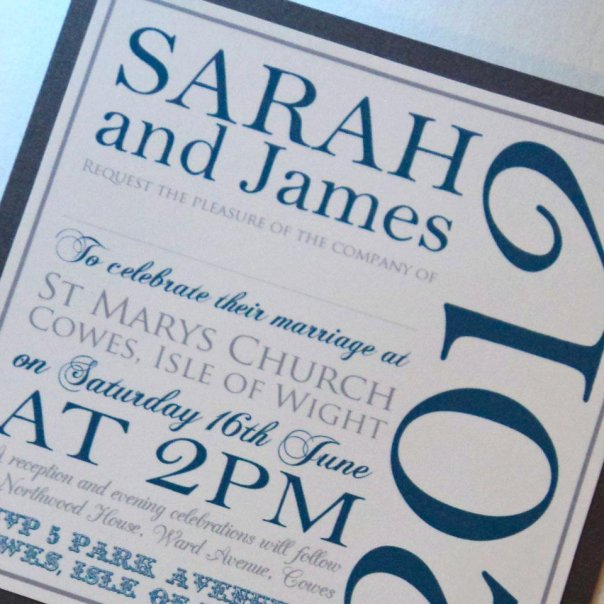 SARAH
and James
REQUEST THE PLEASURE OF THE COMPANY OF
To celebrate their marriage at
ST MARYS CHURCH
COWES, ISLE OF WIGHT
on Saturday 16th June
AT 2PM
A reception and evening celebrations will follow
Northwood House, Ward Avenue, Cowes
5 PARK
ISLE
2012